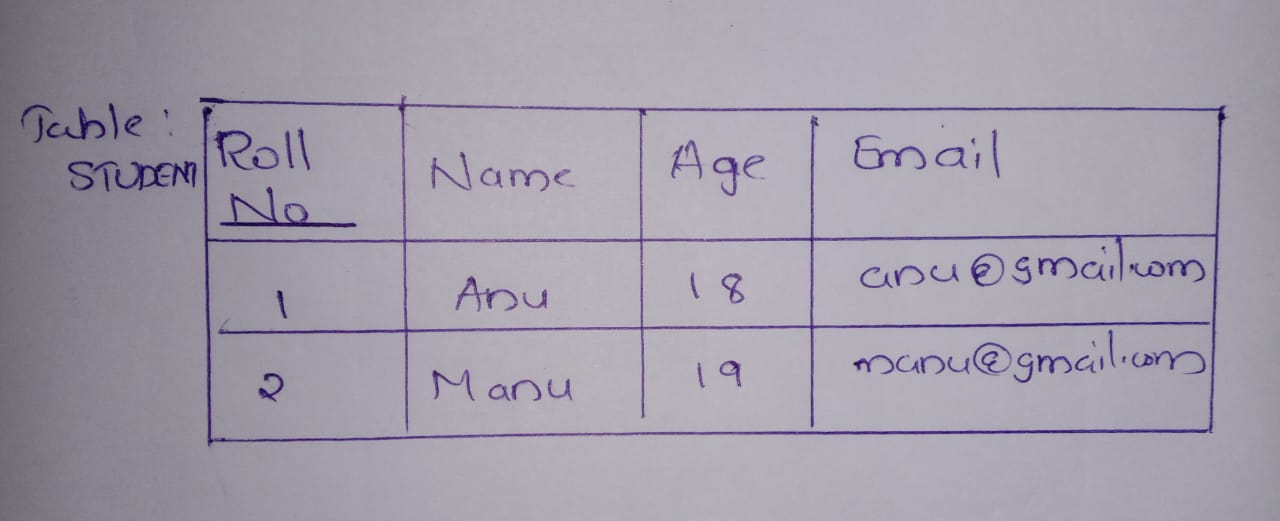 Table:
STUDENT
Roll No Name Age Email
1 Anu 18 anu@gmail.com
2 Manu 19 manu@gmail.com